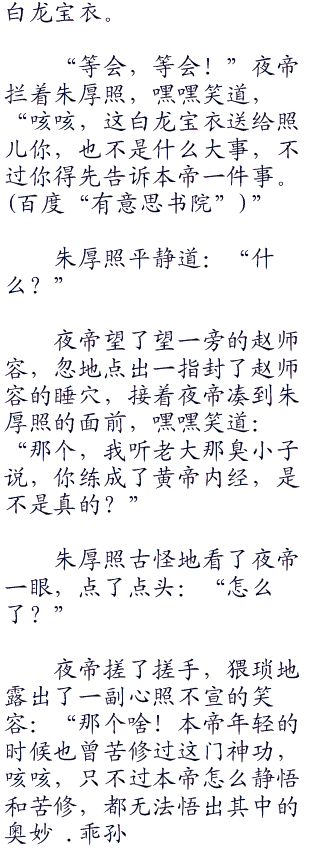 白龙宝衣。
“等会，等会！”夜帝
拦着朱厚照，嘿嘿笑道，
“咳咳，这白龙宝衣送给照
儿你，也不是什么大事，不
过你得先告诉本帝一件事。
(百度“有意思书院”)”
朱厚照平静道：“什
么？”
夜帝望了望一旁的赵师
容，忽地点出一指封了赵师
容的睡穴，接着夜帝凑到朱
厚照的面前，嘿嘿笑道：
“那个，我听老大那臭小子
说，你练成了黄帝内经，是
不是真的？”
朱厚照古怪地看了夜帝
一眼，点了点头：“怎么
了？”
夜帝搓了搓手，猥琐地
露出了一副心照不宣的笑
容：“那个啥！本帝年轻的
时候也曾苦修过这门神功，
咳咳，只不过本帝怎么静悟
和苦修，都无法悟出其中的
奥妙．乖孙